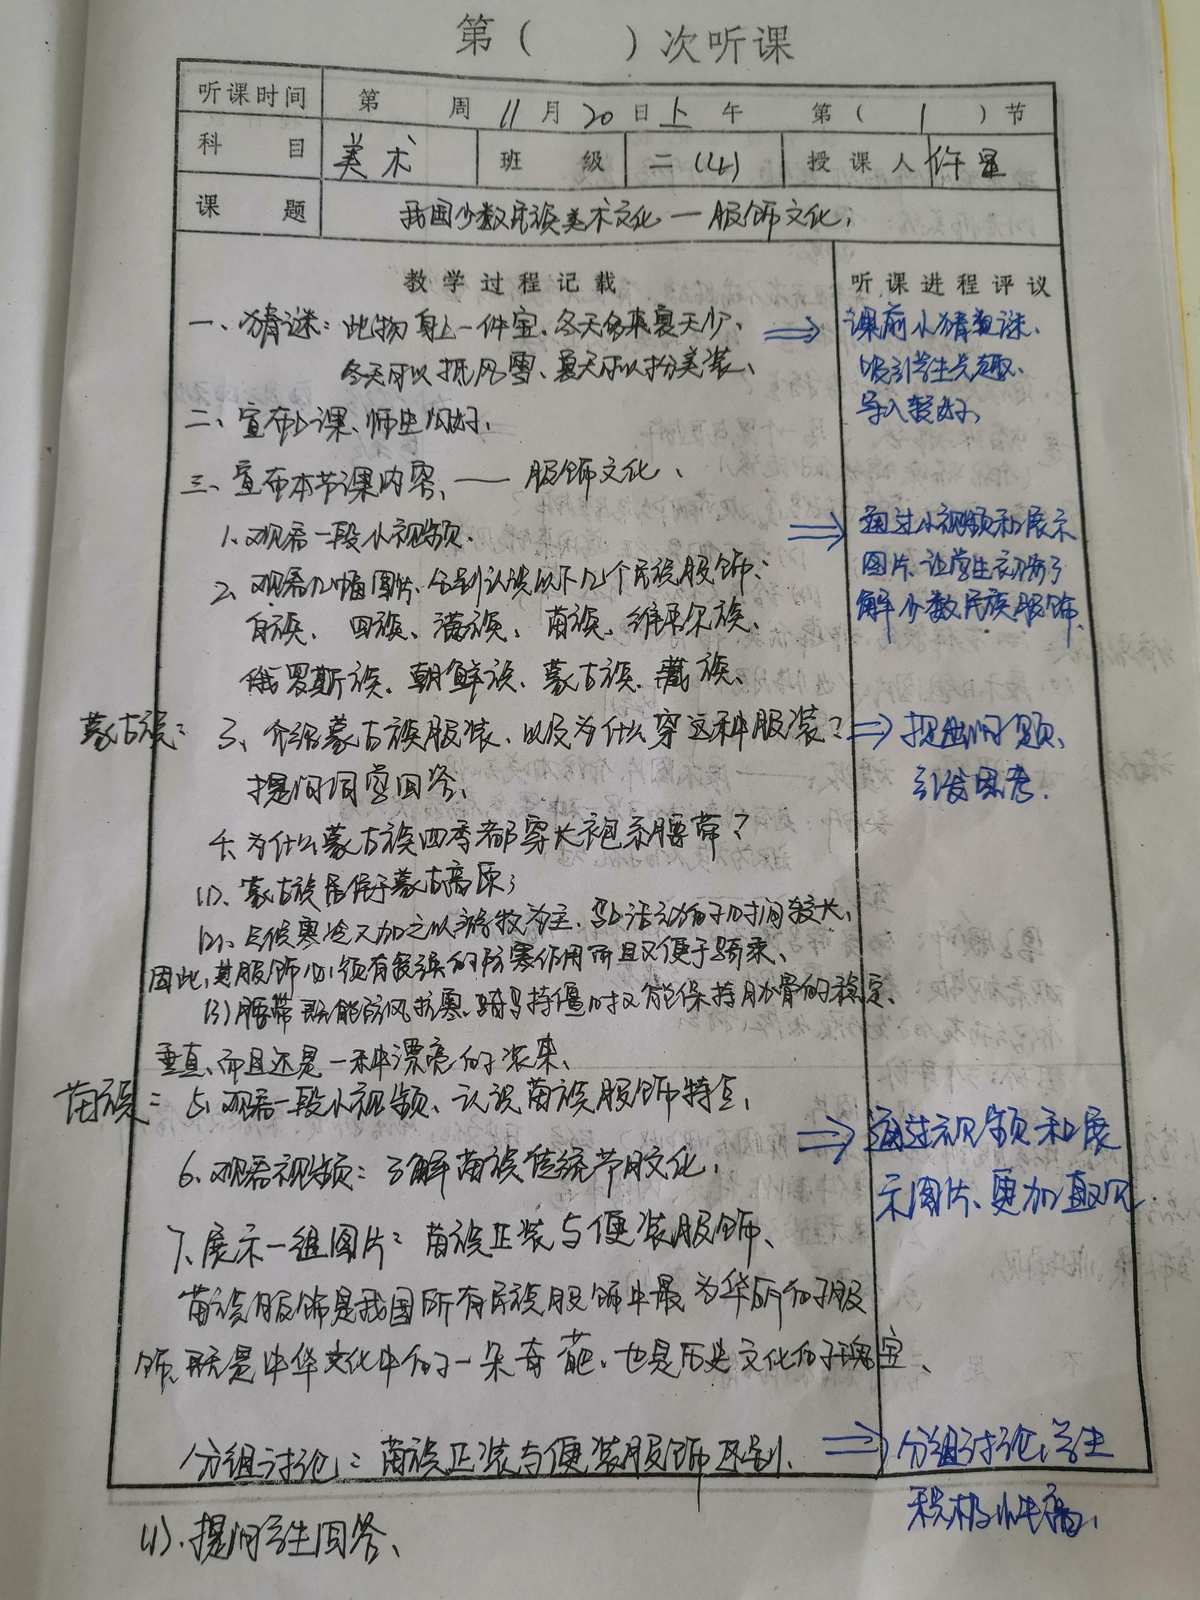 第（　　）次听课
听课时间 第 周 11月20日上午 第（1）节
科目 美术 班级 二(4) 授课人 许星
课题 我国少数民族美术文化——服饰文化，
教学过程记载 听课进程评议
一、猜谜：此物身上一件宝、冬天多来夏天少、
冬天可以抵风雪、夏天可以扮美装、
⇒ 课前小猜谜、
吸引学生兴趣、
导入较好，
二、宣布上课、师生问好，
三、宣布本节课内容、——服饰文化、
1、观看一段小视频．
⇒ 通过小视频和展示
图片、让学生初步了
解少数民族服饰．
2、观看几幅图片、分别认识以下几个民族服饰：
白族、回族、满族、苗族、维吾尔族、
俄罗斯族、朝鲜族、蒙古族、藏族、
蒙古族：3、介绍蒙古族服装、以及为什么穿这种服装？
⇒ 提出问题、
引发思考．
提问同学回答、
4、为什么蒙古族四季都穿长袍系腰带？
(1)、蒙古族居住于蒙古高原；
(2)、气候寒冷又加之以游牧为主、马上活动的时间较长、
因此，其服饰必须有较强的防寒作用而且又便于骑乘、
(3)腰带既能防风抗寒、骑马持缰时又能保持肋骨的稳定、
垂直、而且还是一种漂亮的装束、
苗族：5、观看一段小视频、认识苗族服饰特点，
⇒ 通过视频和展
示图片、更加直观
6、观看视频：了解苗族传统节日文化，
7、展示一组图片：苗族正装与便装服饰、
苗族服饰是我国所有民族服饰中最为华丽的服
饰、既是中华文化中的一朵奇葩、也是历史文化的瑰宝、
分组讨论：苗族正装与便装服饰区别、
⇒ 分组讨论、学生
积极性高、
(1)、提问学生回答、